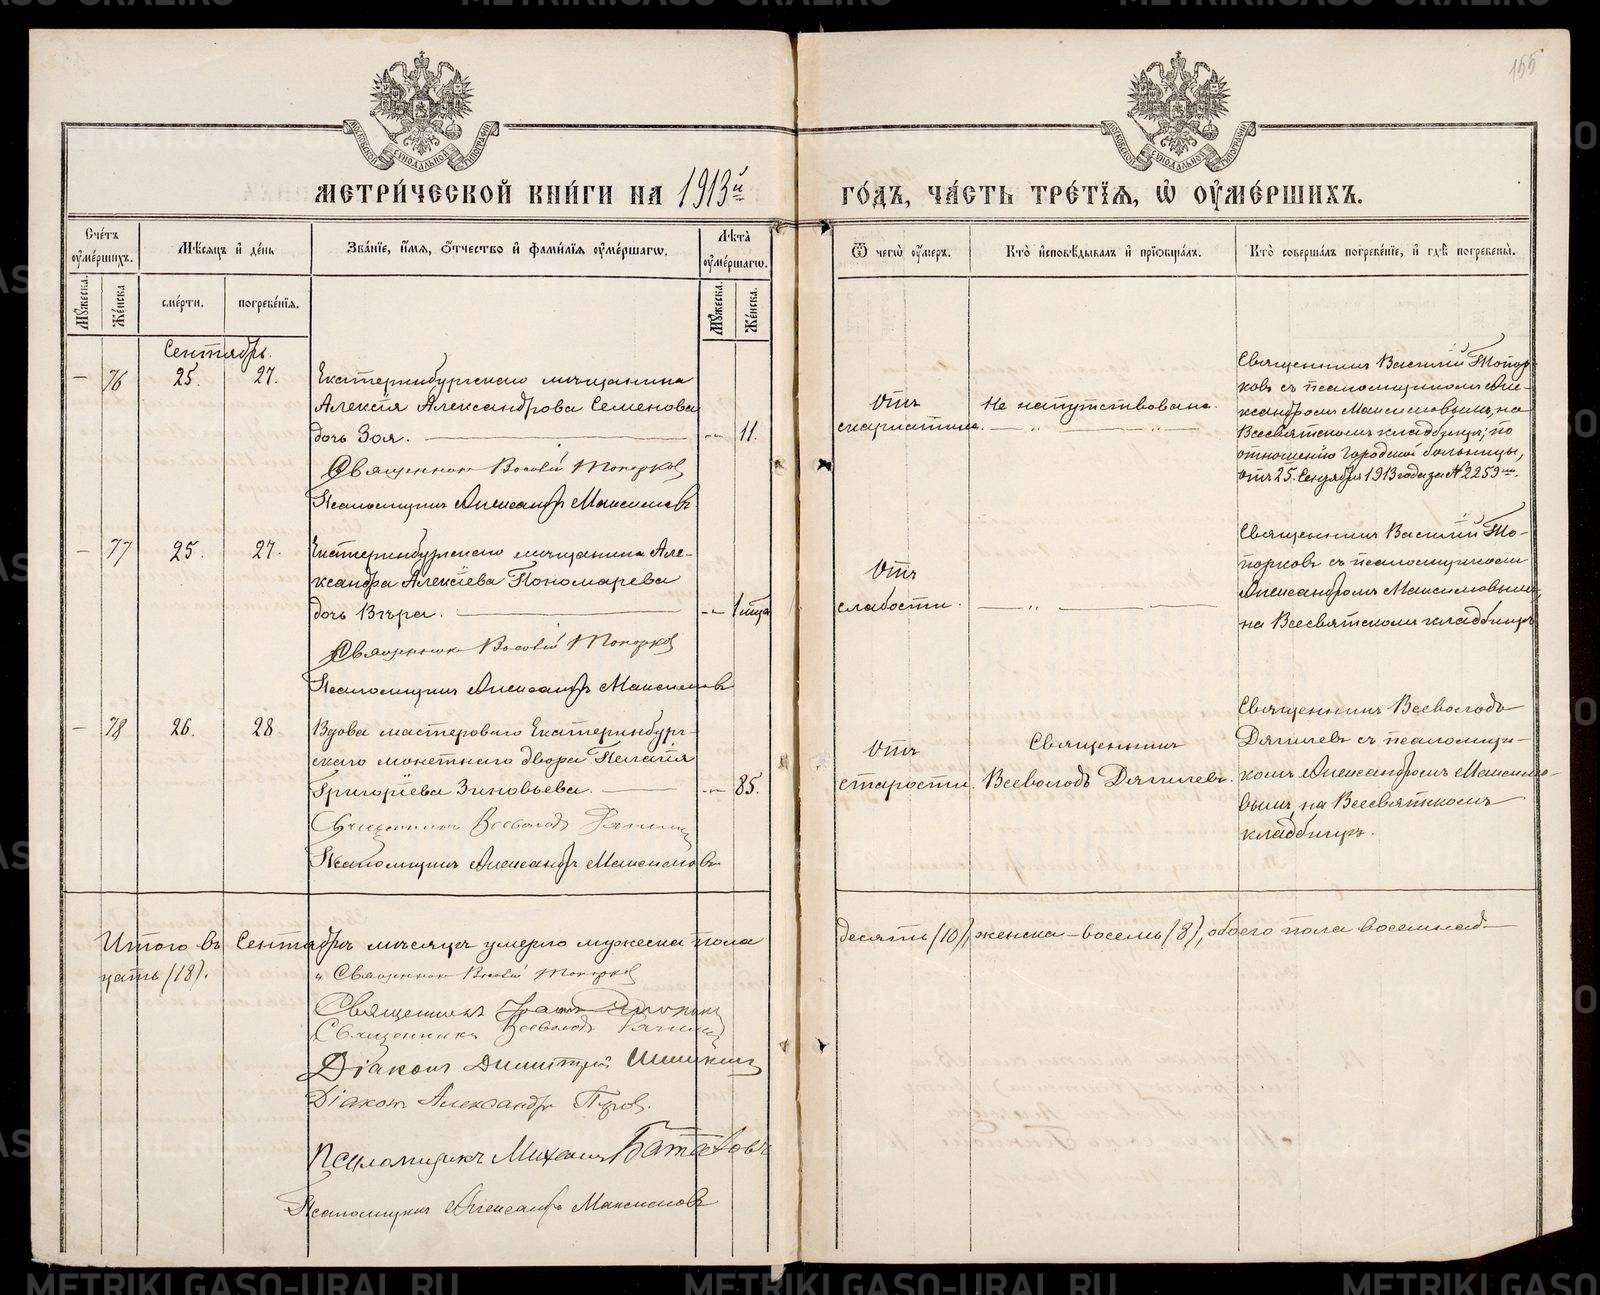 155
МОСКОВСКОЙ СѴНОДАЛЬНОЙ ТИПОГРАФІИ
МОСКОВСКОЙ СѴНОДАЛЬНОЙ ТИПОГРАФІИ
МЕТРИ́ЧЕСКОЙ КНИ́ГИ НА 1913й
ГО́ДЪ, ЧА́СТЬ ТРЕ́ТЇѦ, Ѡ҆ ОУ҆МЕ́РШИХЪ.
Сче́тъ оу҆ме́ршихъ.
Мꙋ́жеска.
Же́нска
Мѣ́сяцъ и҆ де́нь
сме́рти.
погребе́нїѧ.
Зва́нїе, и҆́мѧ, ѻ҆́тчество и҆ фами́лїѧ оу҆ме́ршагѡ.
Лѣ̀та̀ оу҆ме́ршагѡ.
Мꙋ́жеска.
Же́нска.
Ѿ чегѡ̀ оу҆́меръ.
Кто̀ и҆сповѣ́дывалъ и҆ прїѡбща́лъ.
Кто̀ соверша́лъ погребе́нїе, и҆ гдѣ̀ погребены̀.
Сентябрь.
— 76 25. 27.
Екатеринбургскаго мѣщанина
Алексія Александрова Семенова
дочь Зоя. — 11.
Священникъ Василій Топорковъ
Псаломщикъ Александръ Максимовъ
Отъ
скарлатины.
Не напутствована.
Священникъ Василій Топор-
ковъ съ псаломщикомъ Але-
ксандромъ Максимовымъ, на
Всесвятскомъ кладбищѣ; по
отношенію Городской больницы,
отъ 25. Сентября 1913 года за № 2259мъ.
— 77 25. 27.
Екатеринбургскаго мѣщанина Але-
ксандра Алексіева Пономарева
дочь Вѣра. — 1 мѣца
Священникъ Василій Топорковъ
Псаломщикъ Александръ Максимовъ
Отъ
слабости.
— „ —
Священникъ Василій То-
порковъ съ псаломщикомъ
Александромъ Максимовымъ,
на Всесвятскомъ кладбищѣ.
— 78 26. 28
Вдова мастероваго Екатеринбург-
скаго монетнаго двора Пелагія
Григоріева Зиновьева. — 85.
Священникъ Всеволодъ Дягилевъ
Псаломщикъ Александръ Максимовъ
Отъ
старости.
Священникъ
Всеволодъ Дягилевъ.
Священникъ Всеволодъ
Дягилевъ съ псаломщи-
комъ Александромъ Максимо-
вымъ, на Всесвятскомъ
кладбищѣ.
Итого въ Сентябрѣ мѣсяцѣ умерло мужеска пола десять (10), женска – восемь (8), обоего пола восемнад-
цать (18).
Священникъ Василій Топорковъ
Священникъ Іоаннъ
Священникъ Всеволодъ Дягилевъ
Діаконъ Димитрій Шишкинъ
Діаконъ Александръ
Псаломщикъ Михаилъ
Псаломщикъ Александръ Максимовъ
METRIKI.GASO-URAL.RU